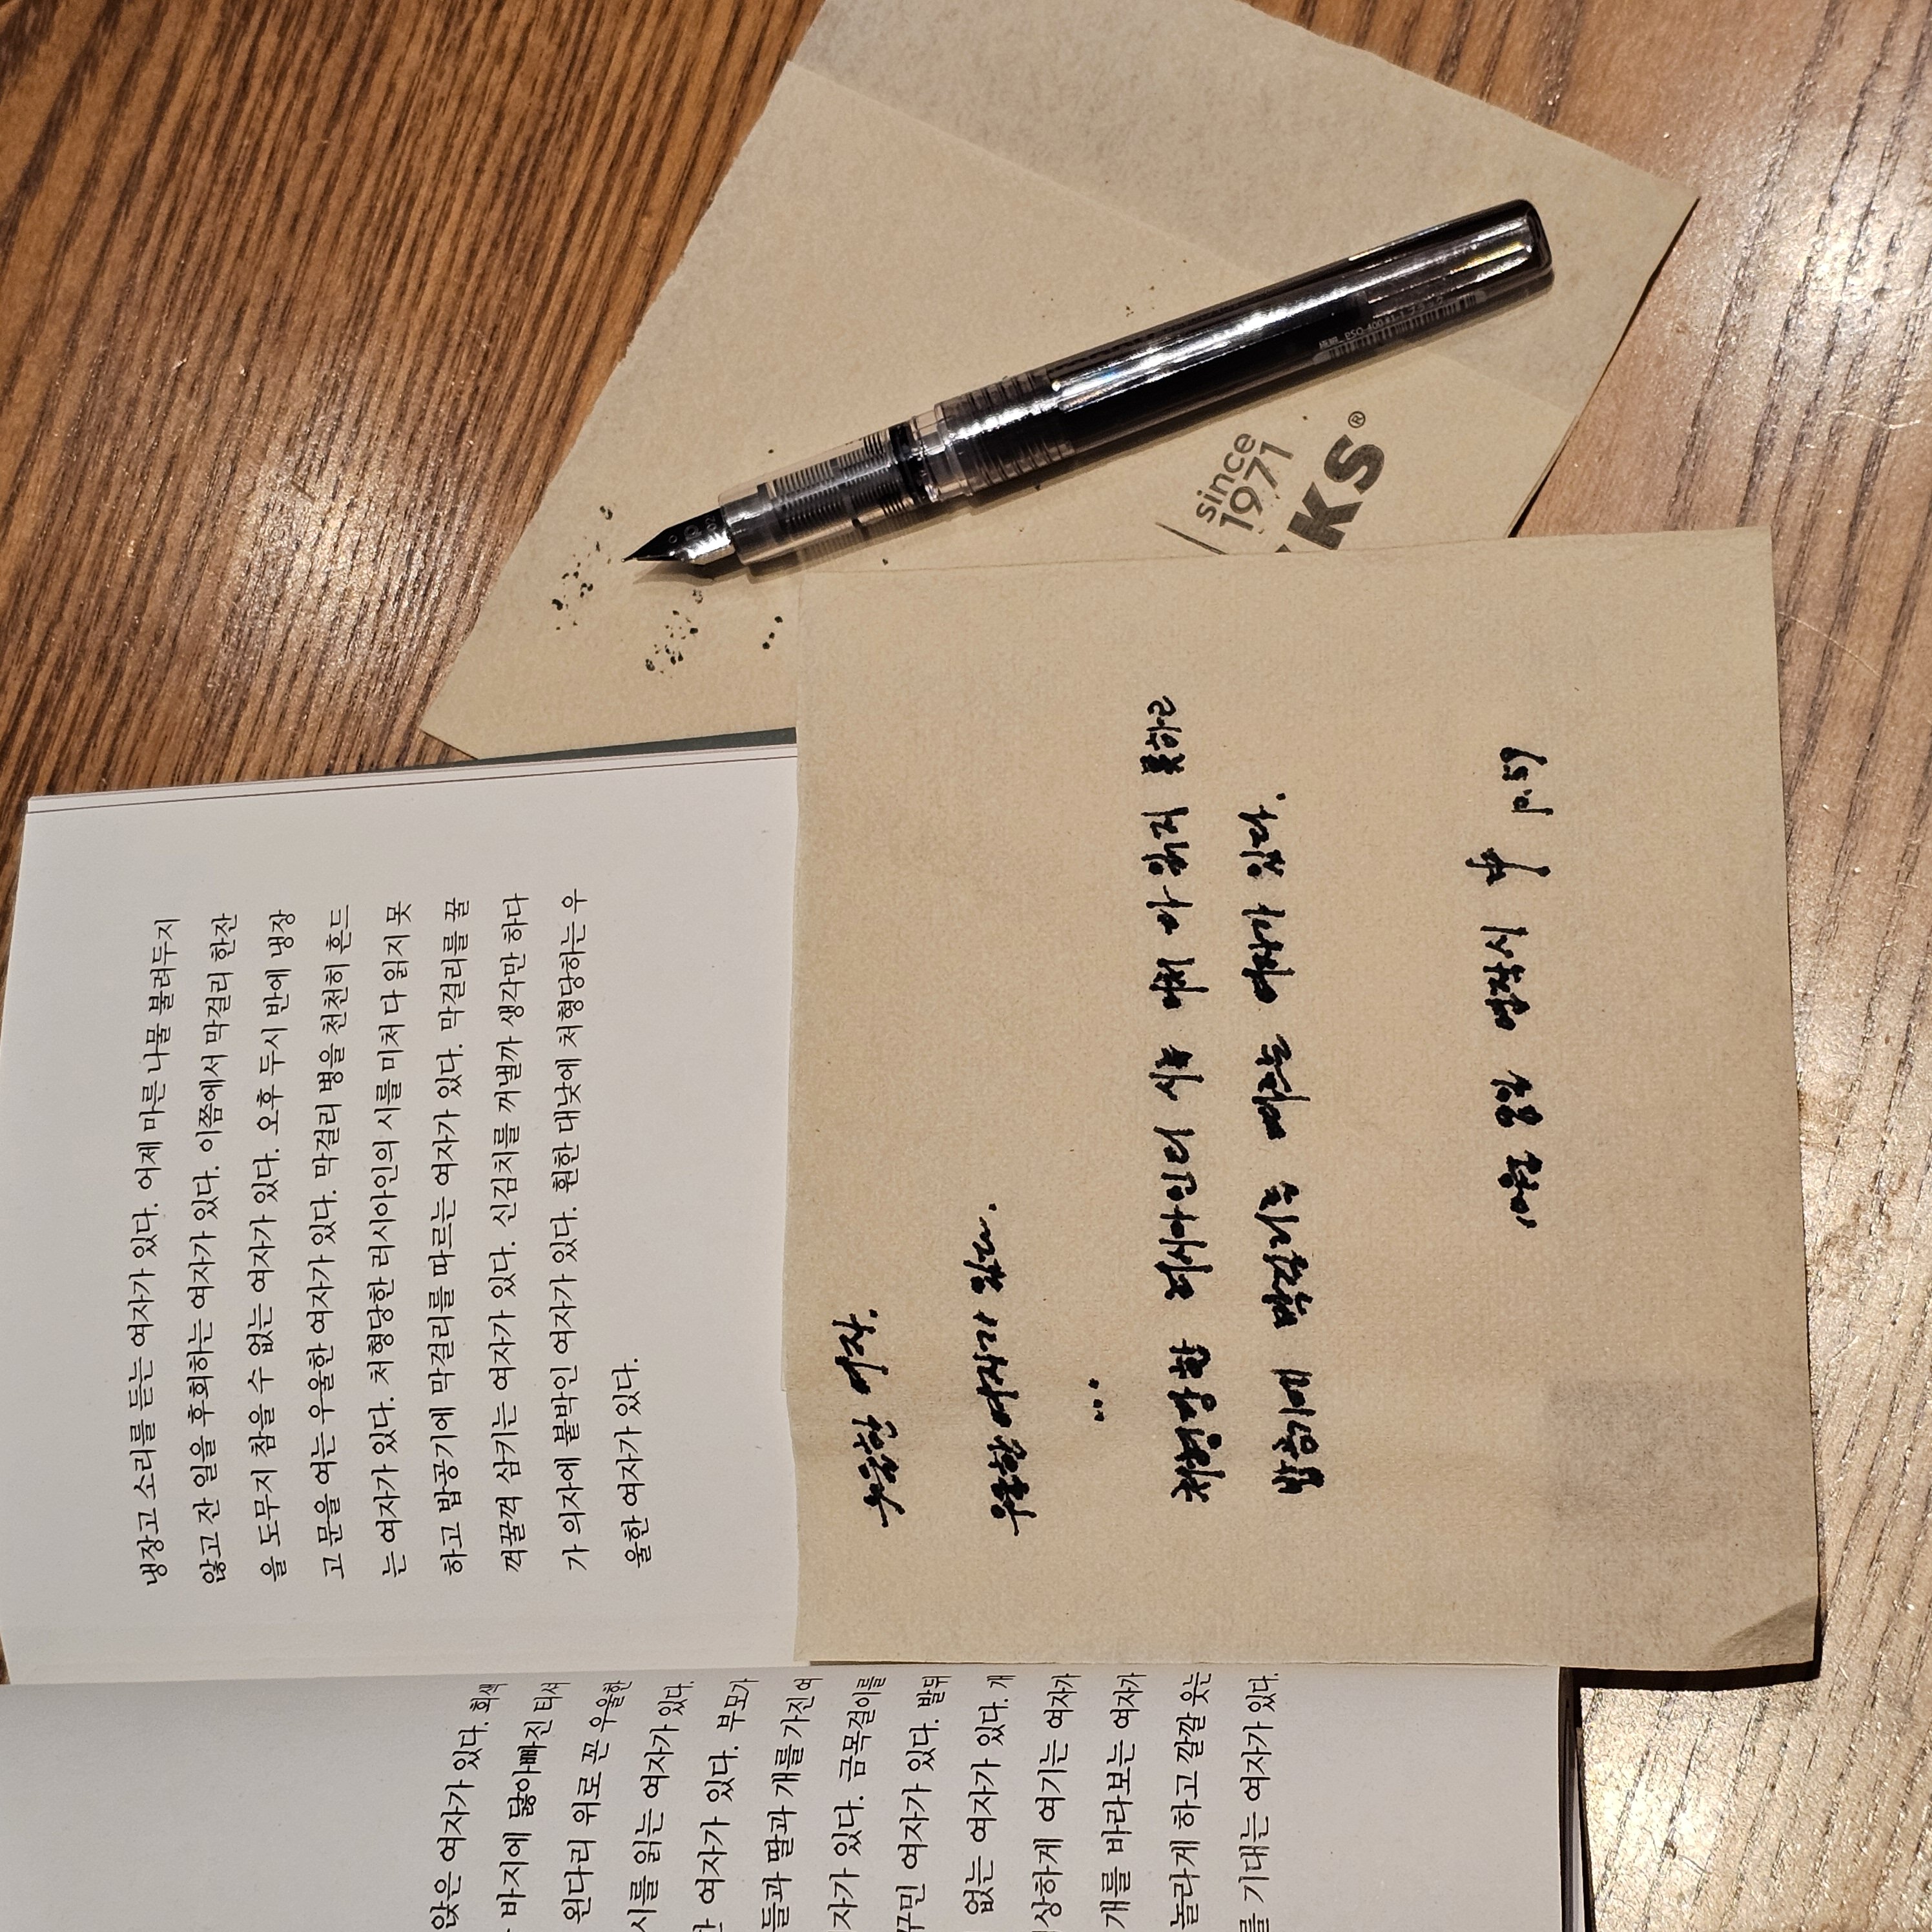 냉장고 소리를 듣는 여자가 있다. 어제 마른 나물 불려두지
않고 잔 일을 후회하는 여자가 있다. 이쯤에서 막걸리 한잔
을 도무지 참을 수 없는 여자가 있다. 오후 두시 반에 냉장
고 문을 여는 우울한 여자가 있다. 막걸리 병을 천천히 흔드
는 여자가 있다. 처형당한 러시아인의 시를 미처 다 읽지 못
하고 밥공기에 막걸리를 따르는 여자가 있다. 막걸리를 꿀
꺽꿀꺽 삼키는 여자가 있다. 신김치를 꺼낼까 생각만 하다
가 의자에 붙박인 여자가 있다. 훤한 대낮에 처형당하는 우
울한 여자가 있다.
앉은 여자가 있다. 회색
바지에 닳아빠진 티셔
왼다리 위로 꼰 우울한
시를 읽는 여자가 있다.
여자가 있다. 부모가
들과 딸과 개를 가진 여
자가 있다. 금목걸이를
꾸민 여자가 있다. 발뒤
없는 여자가 있다. 개
상하게 여기는 여자가
개를 바라보는 여자가
놀라게 하고 깔깔 웃는
를 기대는 여자가 있다.
우울한 여자.
우울한 여자가 있다.
...
처형당한 러시아인의 시를 미처 다 읽지 못하고
밥공기에 막걸리를 따르는 여자가 있다.
p.59
since
1971
KS®